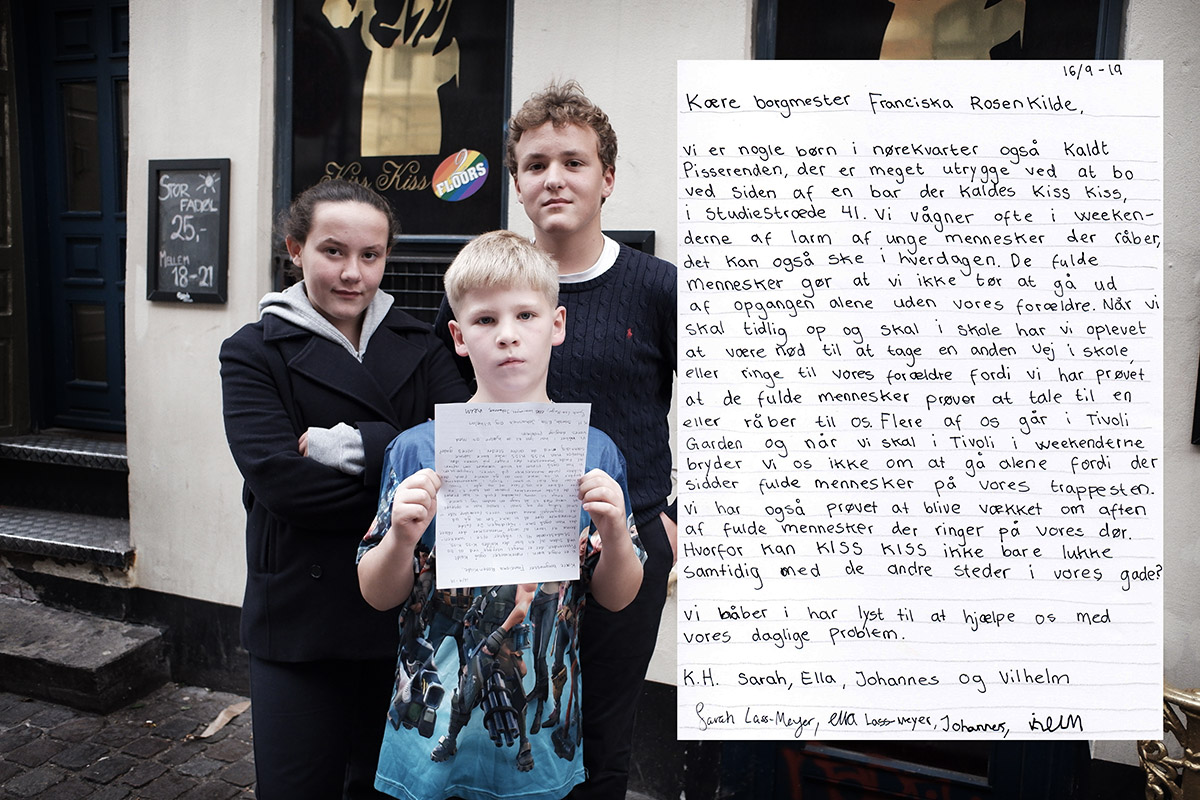 STOR
FADØL
25,-
MELLEM
18-21
Kiss Kiss
2
FLOORS
16/9-19
Kære borgmester Franciska Rosenkilde,
vi er nogle børn i nørekvarter også kaldt
Pisserenden, der er meget utrygge ved at bo
ved siden af en bar der kaldes Kiss Kiss,
i studiestræde 41. Vi vågner ofte i weeken-
derne af larm af unge mennesker der råber,
det kan også ske i hverdagen. De fulde
mennesker gør at vi ikke tør at gå ud
af opgangen alene uden vores forældre. Når vi
skal tidlig op og skal i skole har vi oplevet
at være nød til at tage en anden vej i skole,
eller ringe til vores forældre fordi vi har prøvet
at de fulde mennesker prøver at tale til en
eller råber til os. Flere af os går i Tivoli
Garden og når vi skal i Tivoli i weekenderne
bryder vi os ikke om at gå alene fordi der
sidder fulde mennesker på vores trappesten.
vi har også prøvet at blive vækket om aften
af fulde mennesker der ringer på vores dør.
Hvorfor kan KISS KISS ikke bare lukke
samtidig med de andre steder i vores gade?
vi båber i har lyst til at hjælpe os med
vores daglige problem.
K.H. Sarah, Ella, Johannes og Vilhelm
Sarah Lass-Meyer, ella Lass-meyer, Johannes,